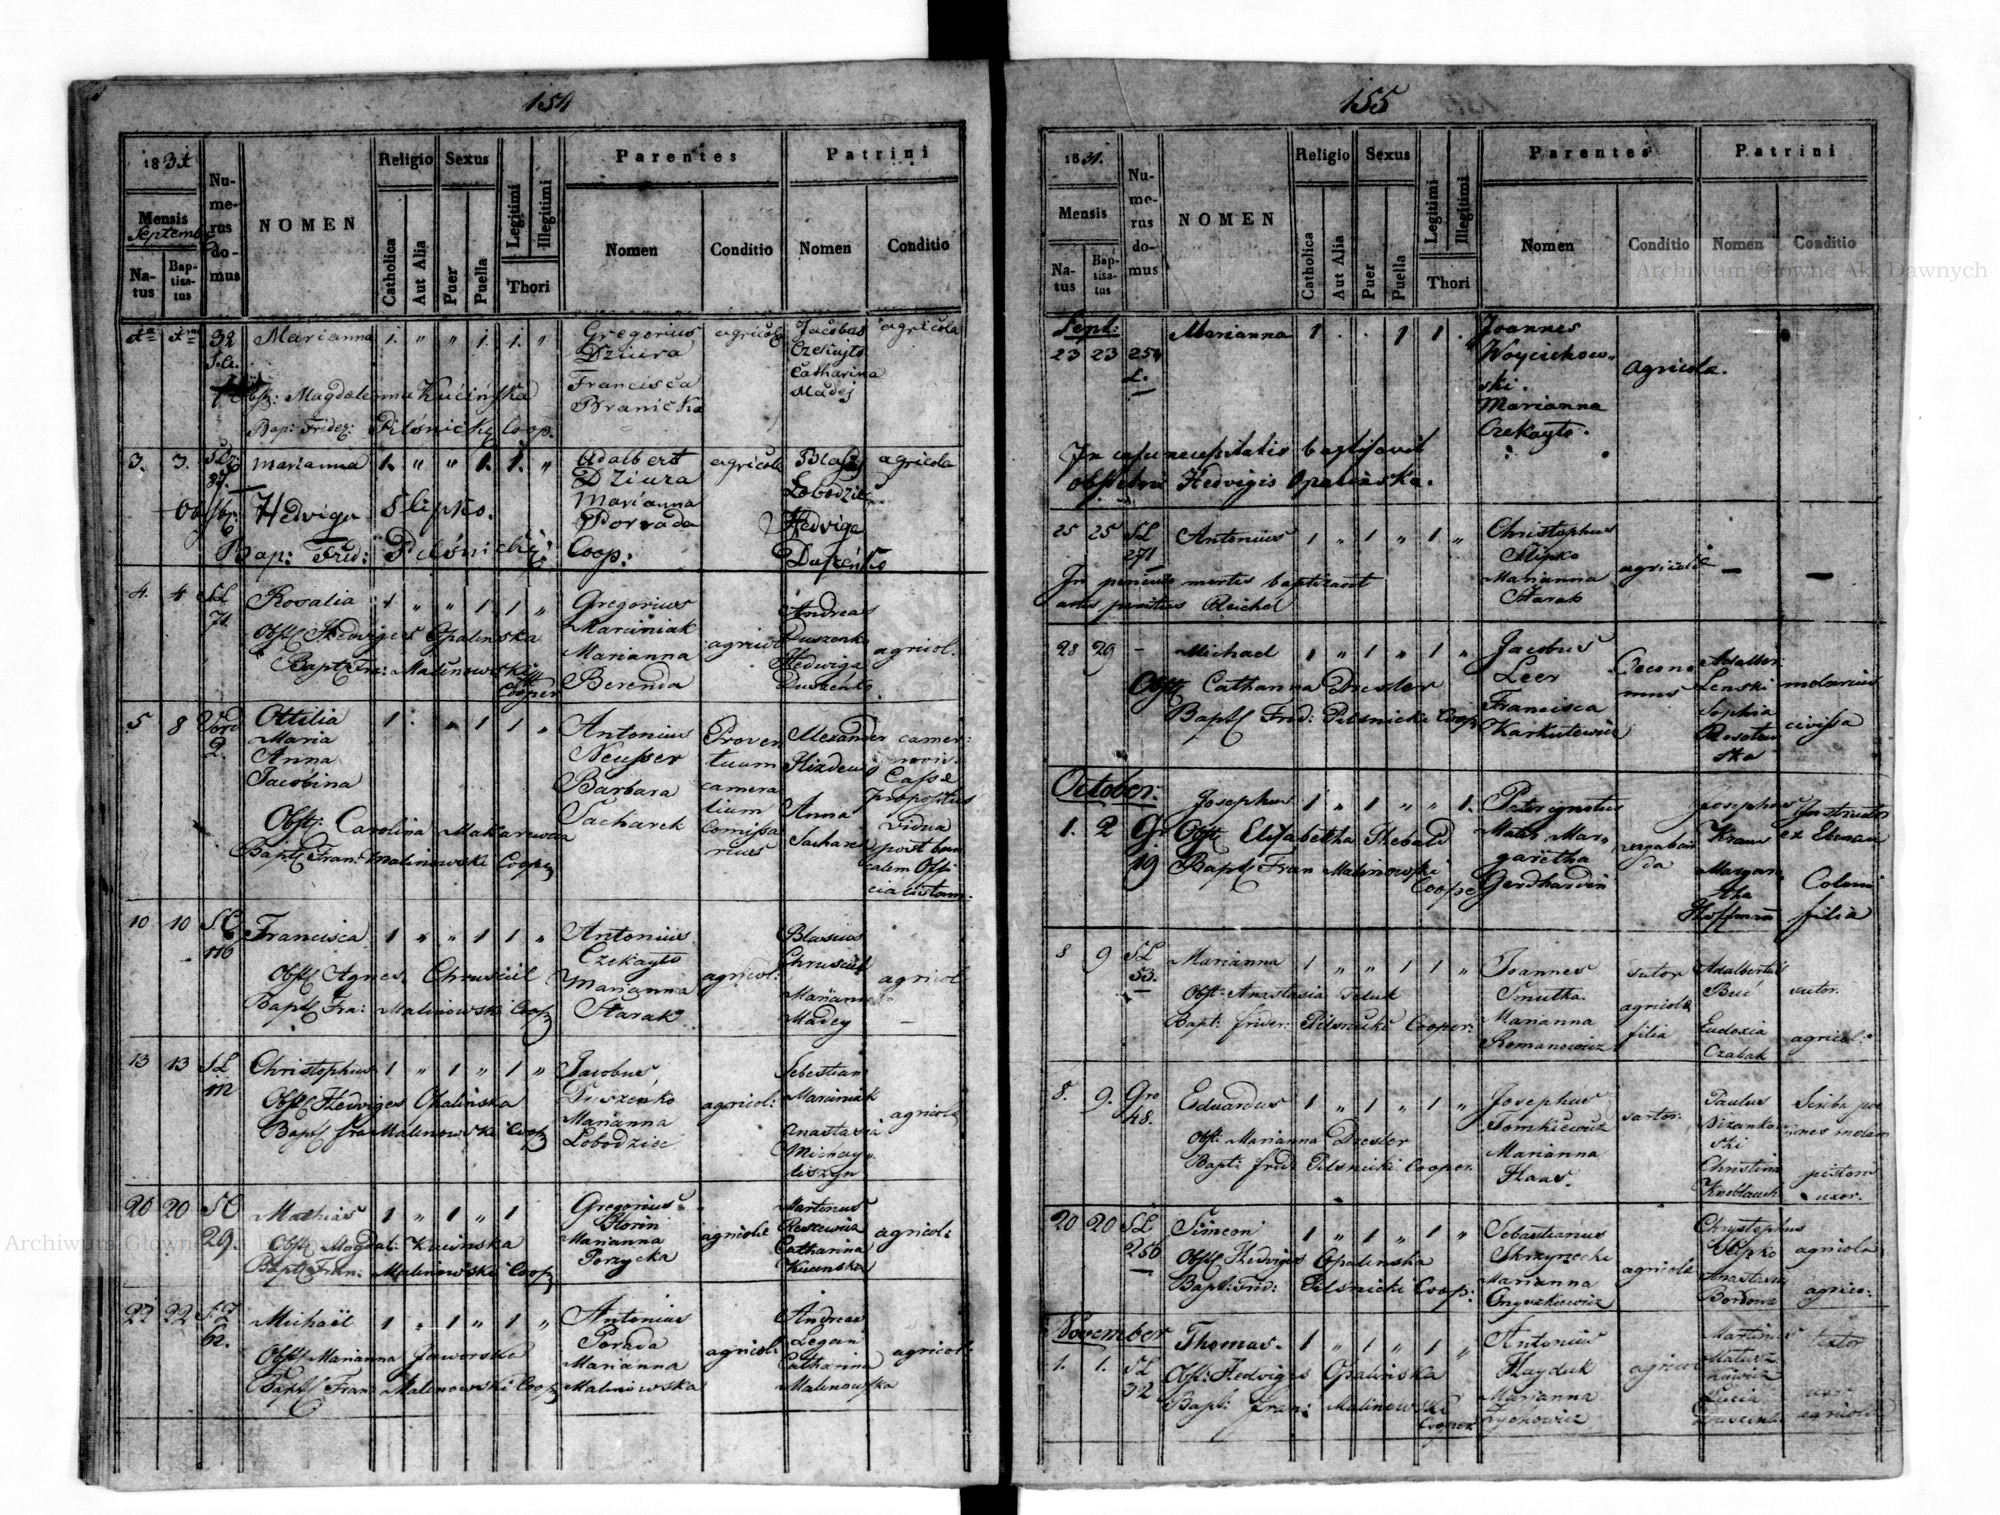 154
1831
Mensis
Septemb
Natus
Baptisatus
Numerus domus
NOMEN
Religio
Catholica
Aut Alia
Sexus
Puer
Puella
Legitimi
Illegitimi
Thori
Parentes
Nomen
Conditio
Patrini
Nomen
Conditio
32 Marianna 1. " " 1. 1. " Gregorius agricola Jacobus agricola
Dziura Czekayto
Francisca Catharina
Branicka Madej
Obst: Magdalenna Kucińska
Bap: Frider: Pilśnicky Coop.
3. 3. Marianna 1. " " 1. 1. " Adalbert agricola Blasij agricola
Dziura Łobodziec
Marianna Hedviga
Porvada Duszeńko
Obst: Hedviga Slipko.
Bap: Frid: Pilśnicky: Coop:
4. 4 SL Rosalia 1 " " 1. 1 " Gregorius Andreas
71. Marciniak Duszenko
Marianna agricol Hedwiga agricol.
Berenda Duszenko
Obst Hedviges Opalinska
Bapt Fra: Malinowski
Cooper
5 8 2. Ottilia 1. 1 1 " Antonius Proven Alexander camer:
Maria Neusser tuum
Anna Barbara camera
Jacobina Sacharek lium Anna propositus
Comissa vidua
rius
Obst: Carolina Makarewicz
Bapt Fran: Malinowski Coop
10 10 116 Francisca 1 " " 1 1 " Antonius Blasius
Czekayto Chrusciel
Marianna agricol: Mariann agricol
Starak Madey
Obst Agnes Chrusciel
Bapt Fra: Malinowski Coop
13 13 SL Christophus 1 " 1 " 1 " Jacobus Sebestian
112 Duszenko Marciniak
Marianna agricol: Anastasia agricola
Lobodziec Michay
liszyn
Obst Hedviges Opalinska
Bapt fra Malinowski Coop
20 20 29. Mathias 1 " 1 " 1 Gregorius Martinus
Florin
Marianna agricola Catharina agricola
Porzycka Kucinska
Obst Magdal: Kucinska
Bapt Fran: Malinowski Coop
22 22 62. Michaël 1 " 1 " 1 " Antonius Andreas
Porada Legan
Marianna agricol: Catharina agricol:
Malinowska Malinowska
Obst Marianna Jaworska
Bapt Fran: Malinowski Coop
155
1831.
Mensis
Natus
Baptisatus
Numerus domus
NOMEN
Religio
Catholica
Aut Alia
Sexus
Puer
Puella
Legitimi
Illegitimi
Thori
Parentes
Nomen
Conditio
Patrini
Nomen
Conditio
Sept:
23 23 254 Marianna 1 . . 1 1 . Joannes
Woyciechow-
ski. agricola.
Marianna
Czekayto.
In casu necessitatis baptisavit
obstetrix Hedvigis Opalinska.
25 25 SL Antonius 1 " 1 " 1 " Christophus
271 Slipko
Marianna agricola — —
Starak
In periculo mortis baptizavit
Reichel
28 29 - Michael 1 " 1 " 1 " Jacobus Oecono Adalber:
Leer mus Lenski molarius
Francisca Sophia civissa
Karkutewicz ska
Obst Catharina Drester
Bapt Frid: Pilsnicki Coop
October:
1. 2 Gr 19 Josephus 1 " 1 " " 1. Pater ignotus Josephus Instructor
Mater Mar, vagabun Kraus
garetha da Margare Coloni
Gerdhardin tha
Hoffmann filia
Obst Elisabetha Thebald
Bapt Fran Malinowski
Coope
8 9 SL 53. Marianna 1 " " 1 1 " Joannes sutor Adalbertus
Smutka. agricola Buć sutor.
Marianna filia Eudoxia agricol:
Romanowicz Czabak
Obst: Anastasia Feduk
Bapt: frider: Pilsnicki Cooper:
8. 9. Gro 48. Eduardus 1 " 1 " 1 " Josephus sartor: Paulus Scriba
Tomkiewicz Bizankow
Marianna ski
Haas. Christina pistoris
Knoblauch uxor.
Obst: Marianna Drester
Bapt: frid: Pilsnicki Cooper
20 20 SL 256 Simeon 1 " 1 " 1 " Sebastianus Chrystophus
Skrzynecki Slipko agricola
Marianna agricola Anastasia agrico:
Onyszkiewicz
Obst Hedviges Opalinska
Bapt: Frid: Pilsnicki Coop:
November
1. 1. SL 32 Thomas. 1 " 1 " 1 " Antonius Martinus textor
Hayduk agricol
Marianna Lucia uxor
Zychowicz Duszenko agricola
Obst: Hedviges Opalinska
Bapt: fran: Malinowski
Cooper
Archiwum Główne Akt Dawnych
Archiwum Główne Akt Dawnych